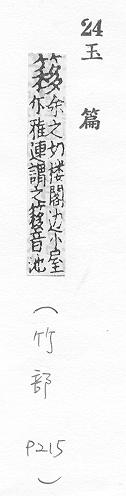 24 玉篇
簃 余之切楼閣边小屋
尔雅連謂之簃音池
(竹部 P215)